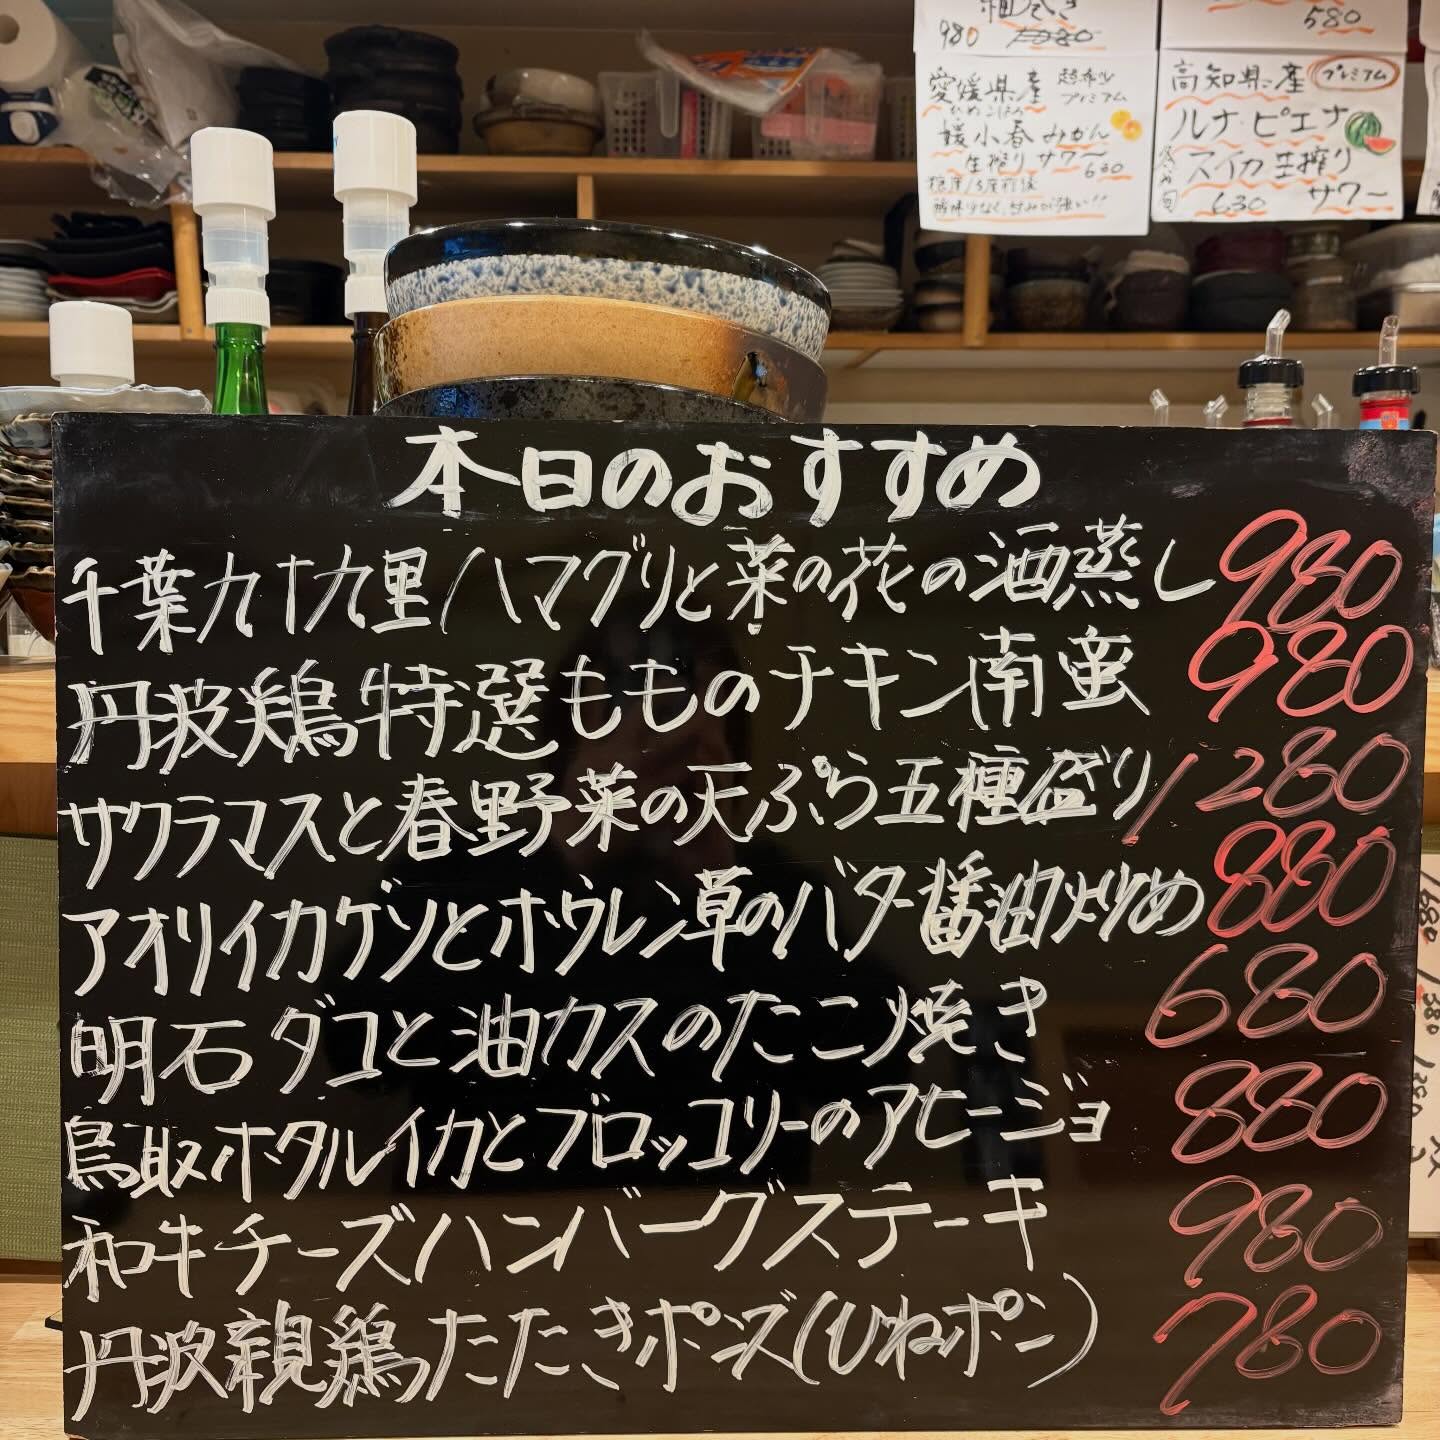 980
580
愛媛県産
プレミアム
媛小春みかん
生搾りサワー
600
酸味少なく、甘みが強い!!
高知県産 プレミアム
ルナ・ピエナ
スイカ生搾り
630 サワー
本日のおすすめ
千葉九十九里ハマグリと菜の花の酒蒸し 980
丹波鶏特選もものチキン南蛮 980
サクラマスと春野菜の天ぷら五種盛り 1280
アオリイカゲソとホウレン草のバター醤油炒め 880
明石ダコと油カスのたこ焼き 680
鳥取ホタルイカとブロッコリーのアヒージョ 880
和牛チーズハンバーグステーキ 980
丹波親鶏たたきポンズ(ひねポン) 780